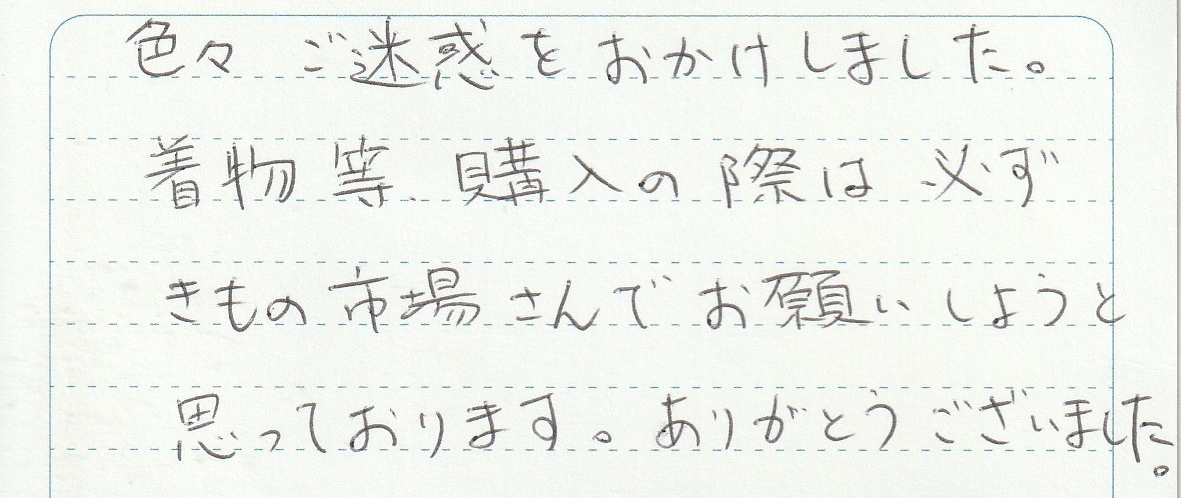 色々 ご迷惑を おかけしました。
着物 等、購入の 際は 必ず
きもの 市場 さんで お願い しようと
思っております。ありがとう ございました。